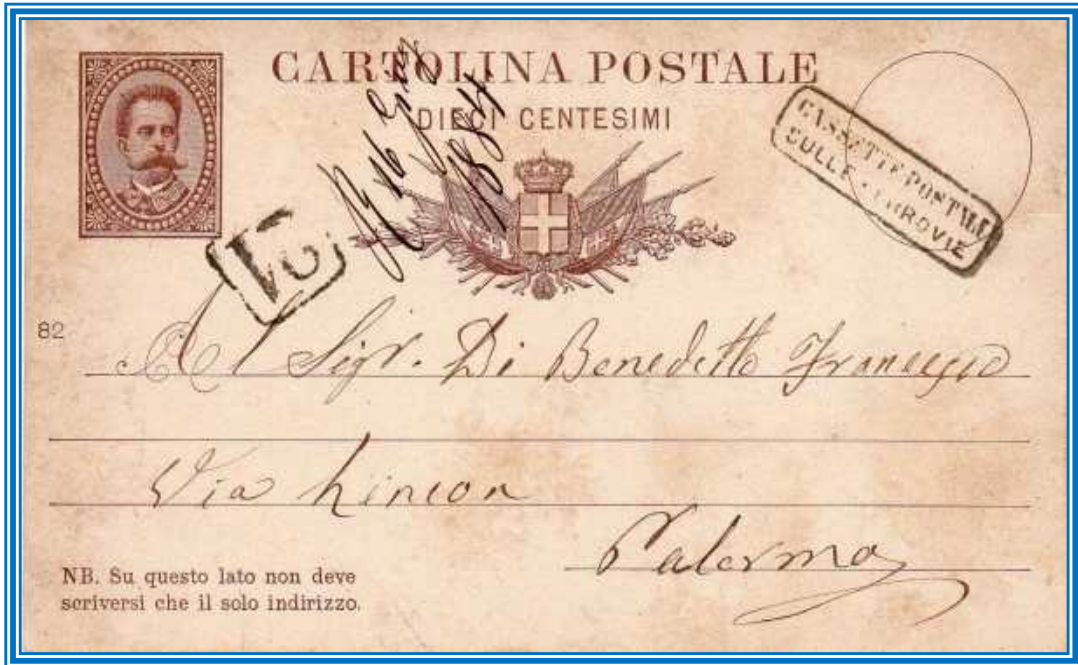 CARTOLINA POSTALE
DIECI CENTESIMI
16
1884
CASSETTE POSTALI
SULLE FERROVIE
82
Al Sigr. Di Benedetto Francesco
Via Lincon
Palermo
NB. Su questo lato non deve
scriversi che il solo indirizzo.